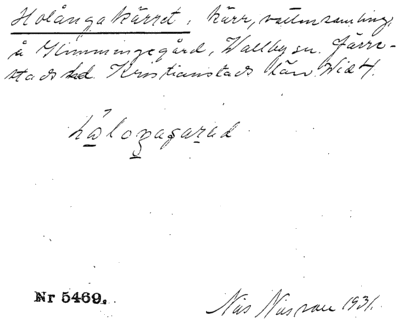 Holångakärret, kärr, vattensamling,
å Himmingegård, Wallby sn. Järre-
stads hd Kristianstads län. Wid 4.
Nr 5469.
Nils Nasrau 1931.